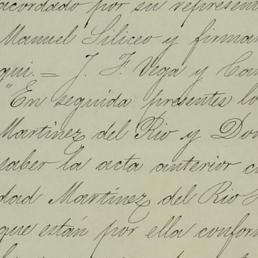 acordado por su represent
Manuel Siliceo y firmar
qui.= J. F. Vega y Car
"En seguida presentes lo
Martinez del Rio y Don
saber la acta anterior c
dad Martinez del Rio
que están por ella confor